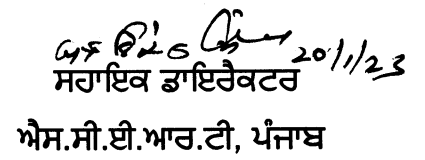 20/1/23
ਸਹਾਇਕ ਡਾਇਰੈਕਟਰ
ਐਸ.ਸੀ.ਈ.ਆਰ.ਟੀ, ਪੰਜਾਬ